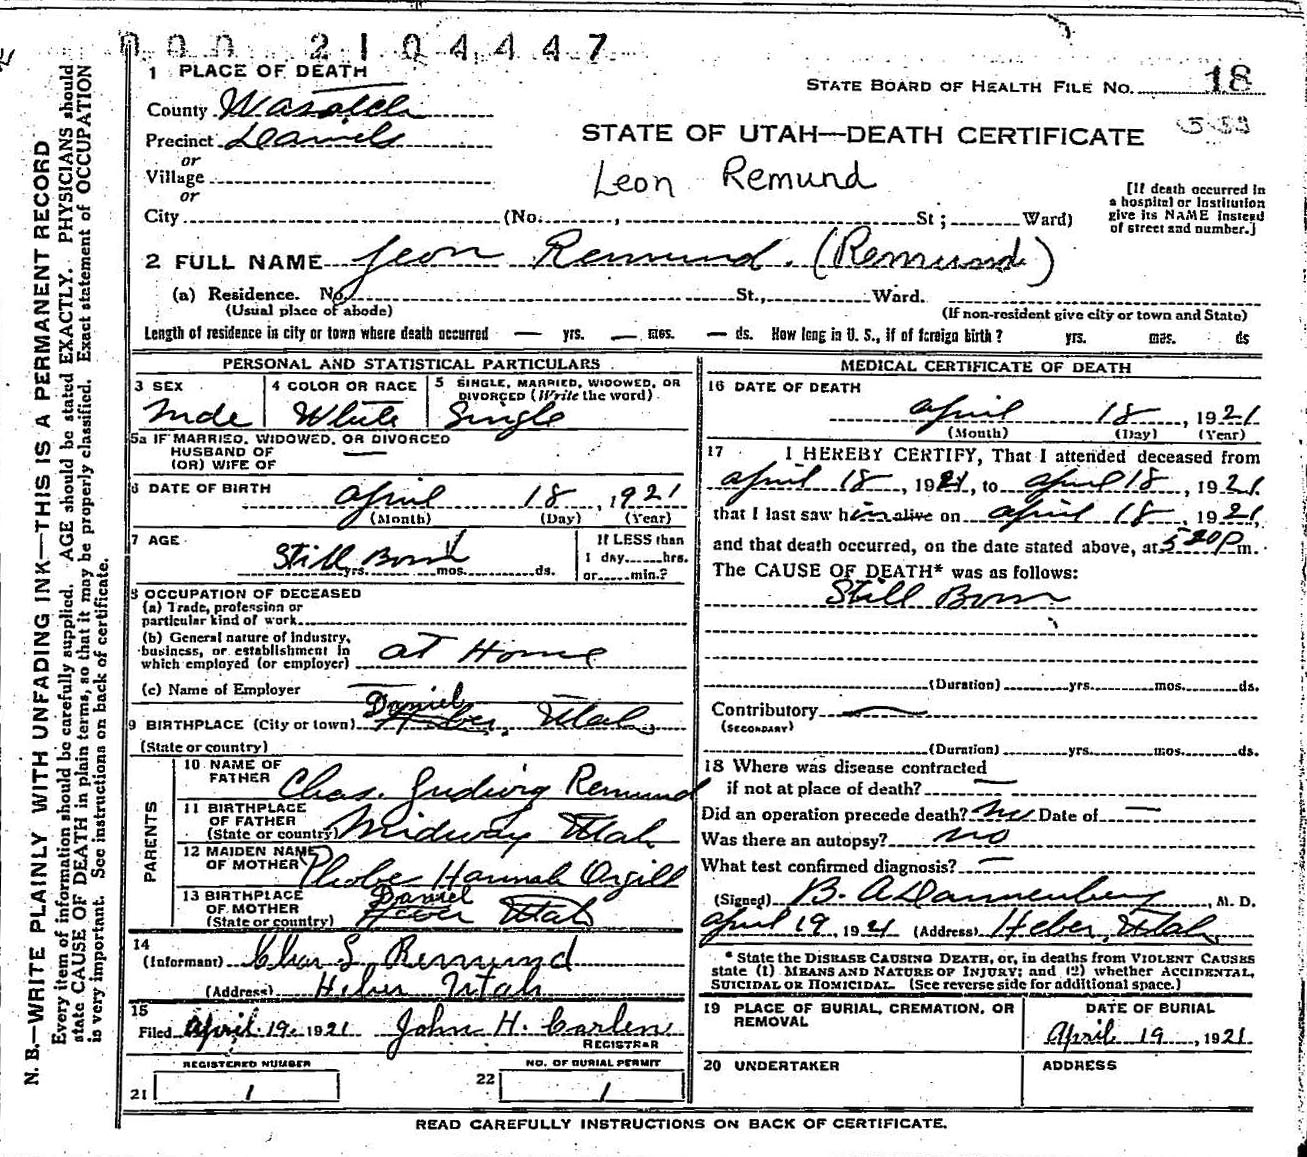 000 2104447
1 PLACE OF DEATH
STATE BOARD OF HEALTH FILE No. 18
County Wasatch
Precinct Daniels
STATE OF UTAH—DEATH CERTIFICATE
or
Village
Leon Remund
or
City (No. , St ; Ward)
[If death occurred in
a hospital or institution
give its NAME instead
of street and number.]
2 FULL NAME Leon Remund. (Remund)
(a) Residence. No. St., Ward.
(Usual place of abode) (If non-resident give city or town and State)
Length of residence in city or town where death occurred — yrs. — mos. — ds. How long in U. S., if of foreign birth? yrs. mos. ds
PERSONAL AND STATISTICAL PARTICULARS
3 SEX
Male
4 COLOR OR RACE
White
5 SINGLE, MARRIED, WIDOWED, OR
DIVORCED (Write the word)
Single
5a IF MARRIED, WIDOWED, OR DIVORCED
HUSBAND OF —
(OR) WIFE OF
6 DATE OF BIRTH
April 18, 1921
(Month) (Day) (Year)
7 AGE
Still Born
yrs. mos. ds.
If LESS than
1 day hrs.
or min.?
8 OCCUPATION OF DECEASED
(a) Trade, profession or
particular kind of work
(b) General nature of industry,
business, or establishment in
which employed (or employer) at Home
(c) Name of Employer —
Daniel
9 BIRTHPLACE (City or town) Heber, Utah
(State or country)
PARENTS
10 NAME OF
FATHER Chas. Ludwig Remund
11 BIRTHPLACE
OF FATHER
(State or country) Midway Utah
12 MAIDEN NAME
OF MOTHER Phobe Hannah Orgill
13 BIRTHPLACE
OF MOTHER Daniel
(State or country) Heber Utah
14
(Informant) Chas L Remund
(Address) Heber Utah
15
Filed April 19, 1921 John H. Carlen
REGISTRAR
REGISTERED NUMBER
21 1
NO. OF BURIAL PERMIT
22 1
MEDICAL CERTIFICATE OF DEATH
16 DATE OF DEATH
April 18, 1921
(Month) (Day) (Year)
17 I HEREBY CERTIFY, That I attended deceased from
April 18, 1921, to April 18, 1921
that I last saw him alive on April 18, 1921,
and that death occurred, on the date stated above, at 5 20 P m.
The CAUSE OF DEATH* was as follows:
Still Born
(Duration) yrs. mos. ds.
Contributory —
(SECONDARY)
(Duration) yrs. mos. ds.
18 Where was disease contracted
if not at place of death? —
Did an operation precede death? No Date of —
Was there an autopsy? no
What test confirmed diagnosis? —
(Signed) B. A. Dannenberg, M. D.
April 19, 1921 (Address) Heber, Utah
* State the DISEASE CAUSING DEATH, or, in deaths from VIOLENT CAUSES
state (1) MEANS AND NATURE OF INJURY; and (2) whether ACCIDENTAL,
SUICIDAL OR HOMICIDAL. (See reverse side for additional space.)
19 PLACE OF BURIAL, CREMATION, OR
REMOVAL
DATE OF BURIAL
April 19, 1921
20 UNDERTAKER
ADDRESS
READ CAREFULLY INSTRUCTIONS ON BACK OF CERTIFICATE.
N. B.—WRITE PLAINLY WITH UNFADING INK—THIS IS A PERMANENT RECORD
Every item of information should be carefully supplied. AGE should be stated EXACTLY. PHYSICIANS should
state CAUSE OF DEATH in plain terms, so that it may be properly classified. Exact statement of OCCUPATION
is very important. See instructions on back of certificate.